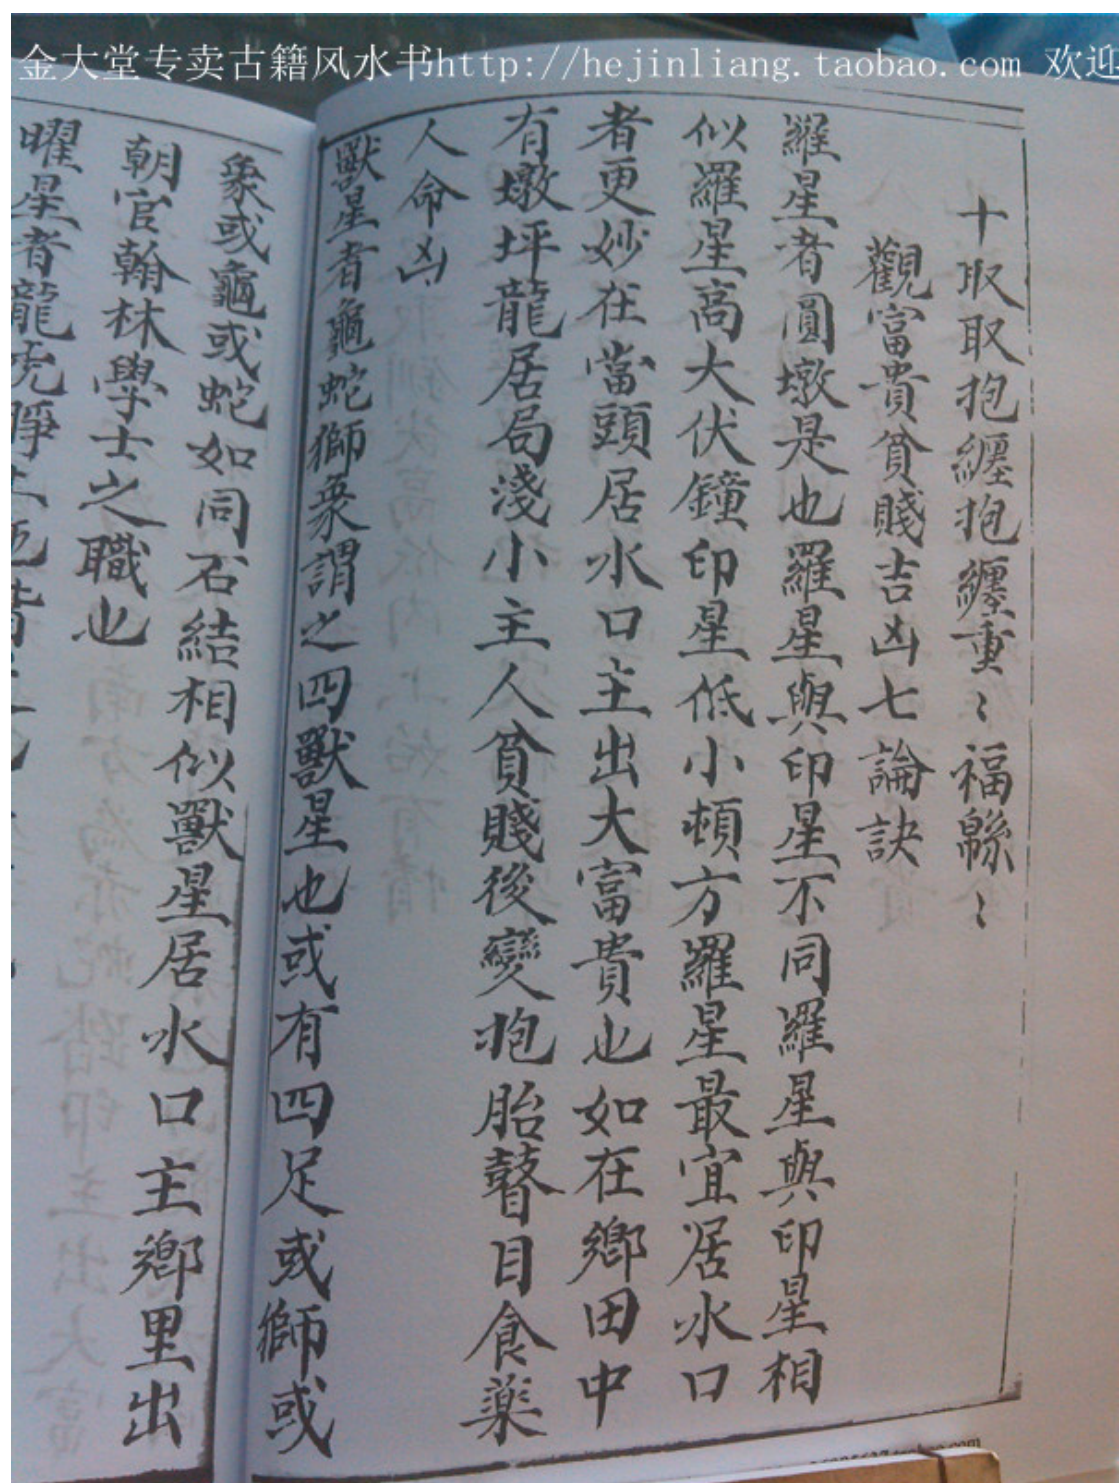 金大堂专卖古籍风水书http://hejinliang.taobao.com 欢迎
十取取抱纏抱纏重〻福綿〻
觀富貴貧賤吉凶七論訣
羅星者圓墩是也羅星與印星不同羅星與印星相
似羅星高大伏鐘印星低小頓方羅星最宜居水口
者更妙在當頭居水口主出大富貴也如在鄉田中
有墩坪龍居局淺小主人貧賤後變抱胎瞽目食藥
人命凶
獸星者龜蛇獅象謂之四獸星也或有四足或獅或
象或龜或蛇如同石結相似獸星居水口主鄉里出
朝官翰林學士之職也
曜星者龍虎